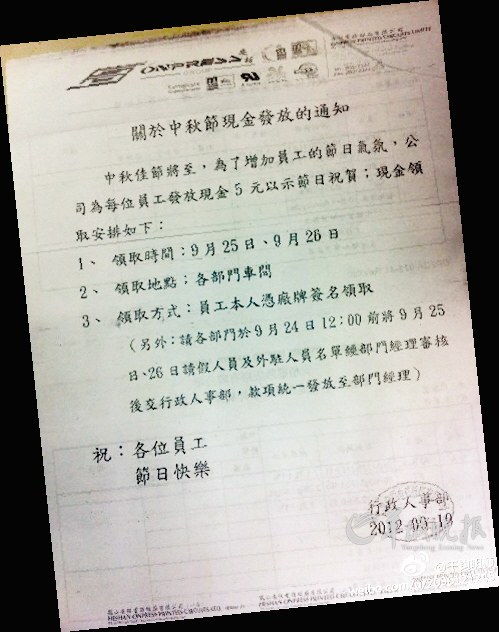 關於中秋節現金發放的通知
中秋佳節將至，為了增加員工的節日氣氛，公
司為每位員工發放現金5元以示節日祝賀；現金領
取安排如下：
1、 領取時間：9月25日、9月26日
2、 領取地點：各部門車間
3、 領取方式：員工本人憑廠牌簽名領取
（另外：請各部門於9月24日12:00前將9月25
日、26日請假人員及外駐人員名單經部門經理審核
後交行政人事部，款項統一發放至部門經理）
祝：各位員工
節日快樂
行政人事部
2012-09-19
羊城晚報
Yangcheng Evening News